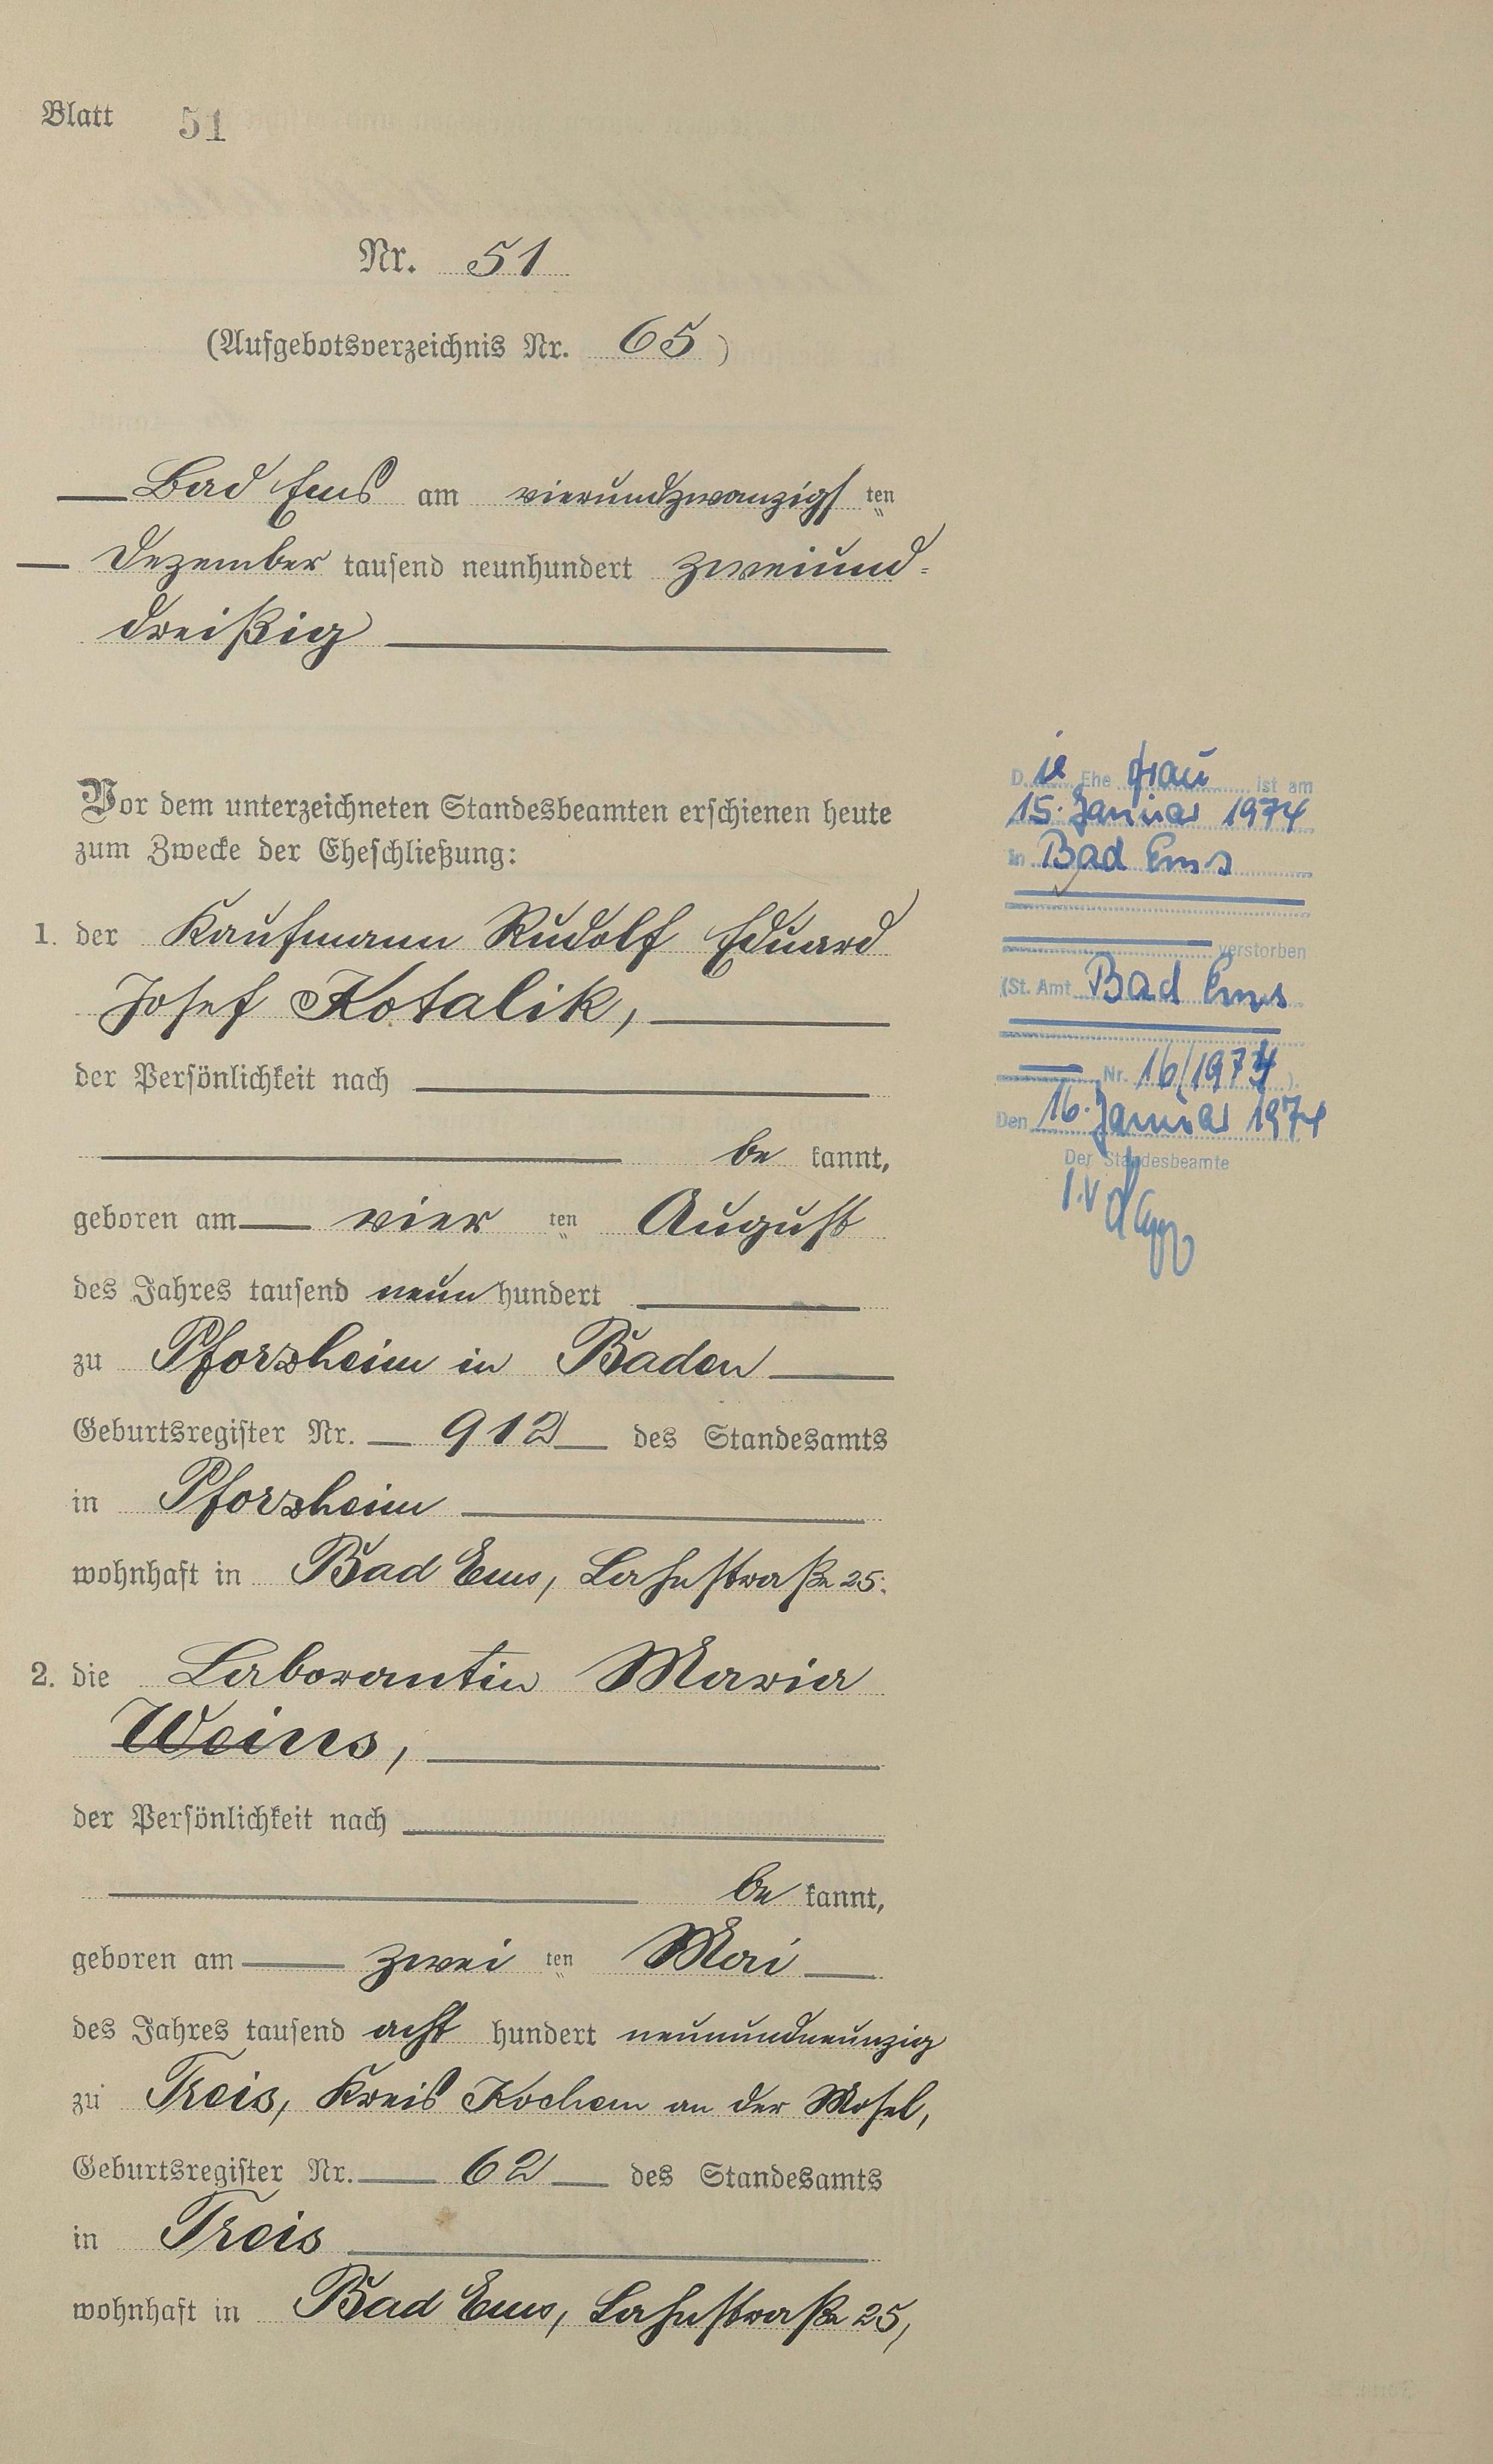 Blatt 51
Nr. 51
(Aufgebotsverzeichnis Nr. 65)
Bad Ems am vierundzwanzigsten
Dezember tausend neunhundert zweiund-
dreißig
Vor dem unterzeichneten Standesbeamten erschienen heute
zum Zwecke der Eheschließung:
1. der Kaufmann Rudolf Eduard
Josef Kotalik,
der Persönlichkeit nach
be kannt,
geboren am vier ten August
des Jahres tausend neun hundert
zu Pforzheim in Baden
Geburtsregister Nr. 912 des Standesamts
in Pforzheim
wohnhaft in Bad Ems, Lahnstraße 25.
2. die Laborantin Maria
Weins,
der Persönlichkeit nach
be kannt,
geboren am zwei ten Mai
des Jahres tausend acht hundert neunundneunzig
zu Treis, Kreis Kochem an der Mosel,
Geburtsregister Nr. 62 des Standesamts
in Treis
wohnhaft in Bad Ems, Lahnstraße 25,
Die Ehe frau ist am
15. Januar 1974
in Bad Ems
verstorben
(St. Amt Bad Ems
Nr. 16/1974).
Den 16. Januar 1974
Der Standesbeamte
I.V.